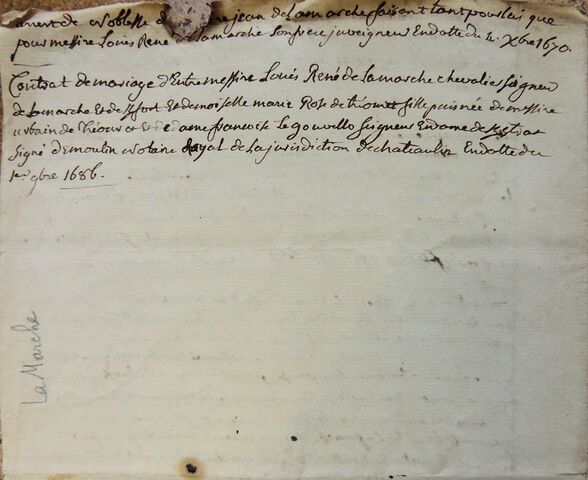 arrest de noblesse de jean de Lamarche faisant tant pour luy que
pour messire Loüis René de Lamarche son frere juveigneur En datte du 4. Xbre 1670.
Contrat de mariage d'Entre messire Loüis René de Lamarche chevalier seigneur
de Lamarche Et de Et demoiselle marie Rose de tréouret fille puisnée de messire
urbain de tréouret Et de dame francoise Le gouvello seigneur Et dame de
signé demoulin notaire Royal de La jurisdiction de chateaulin En datte du
1er 9bre 1686.
La Marche